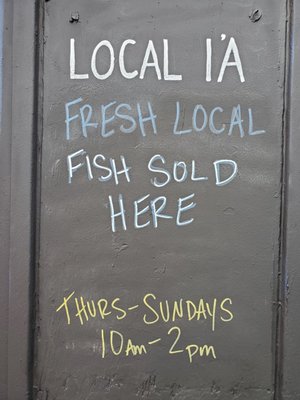 LOCAL I'A
FRESH LOCAL
FISH SOLD
HERE
THURS-SUNDAYS
10AM-2pm